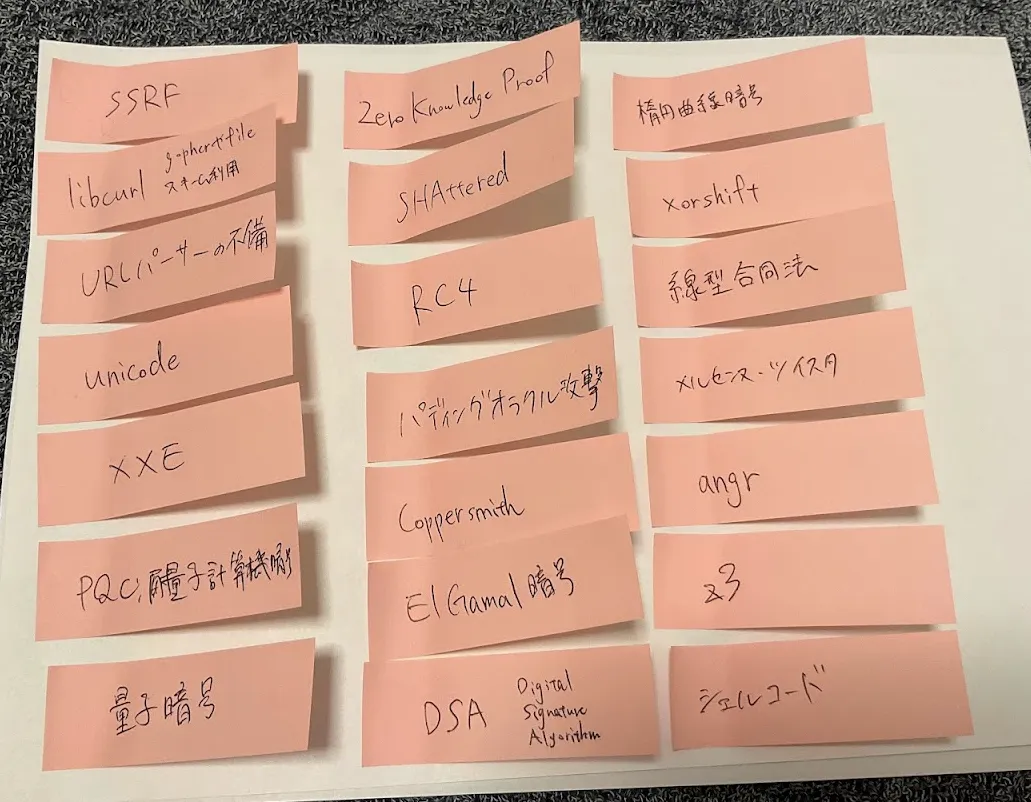 SSRF
libcurl gopherやfile
スキーム利用
URLパーサーの不備
unicode
XXE
PQC,耐量子計算機暗号
量子暗号
Zero Knowledge Proof
SHAttered
RC4
パディングオラクル攻撃
Coppersmith
ElGamal暗号
DSA Digital
Signature
Algorithm
楕円曲線暗号
xorshift
線型合同法
メルセンヌ・ツイスタ
angr
z3
シェルコード